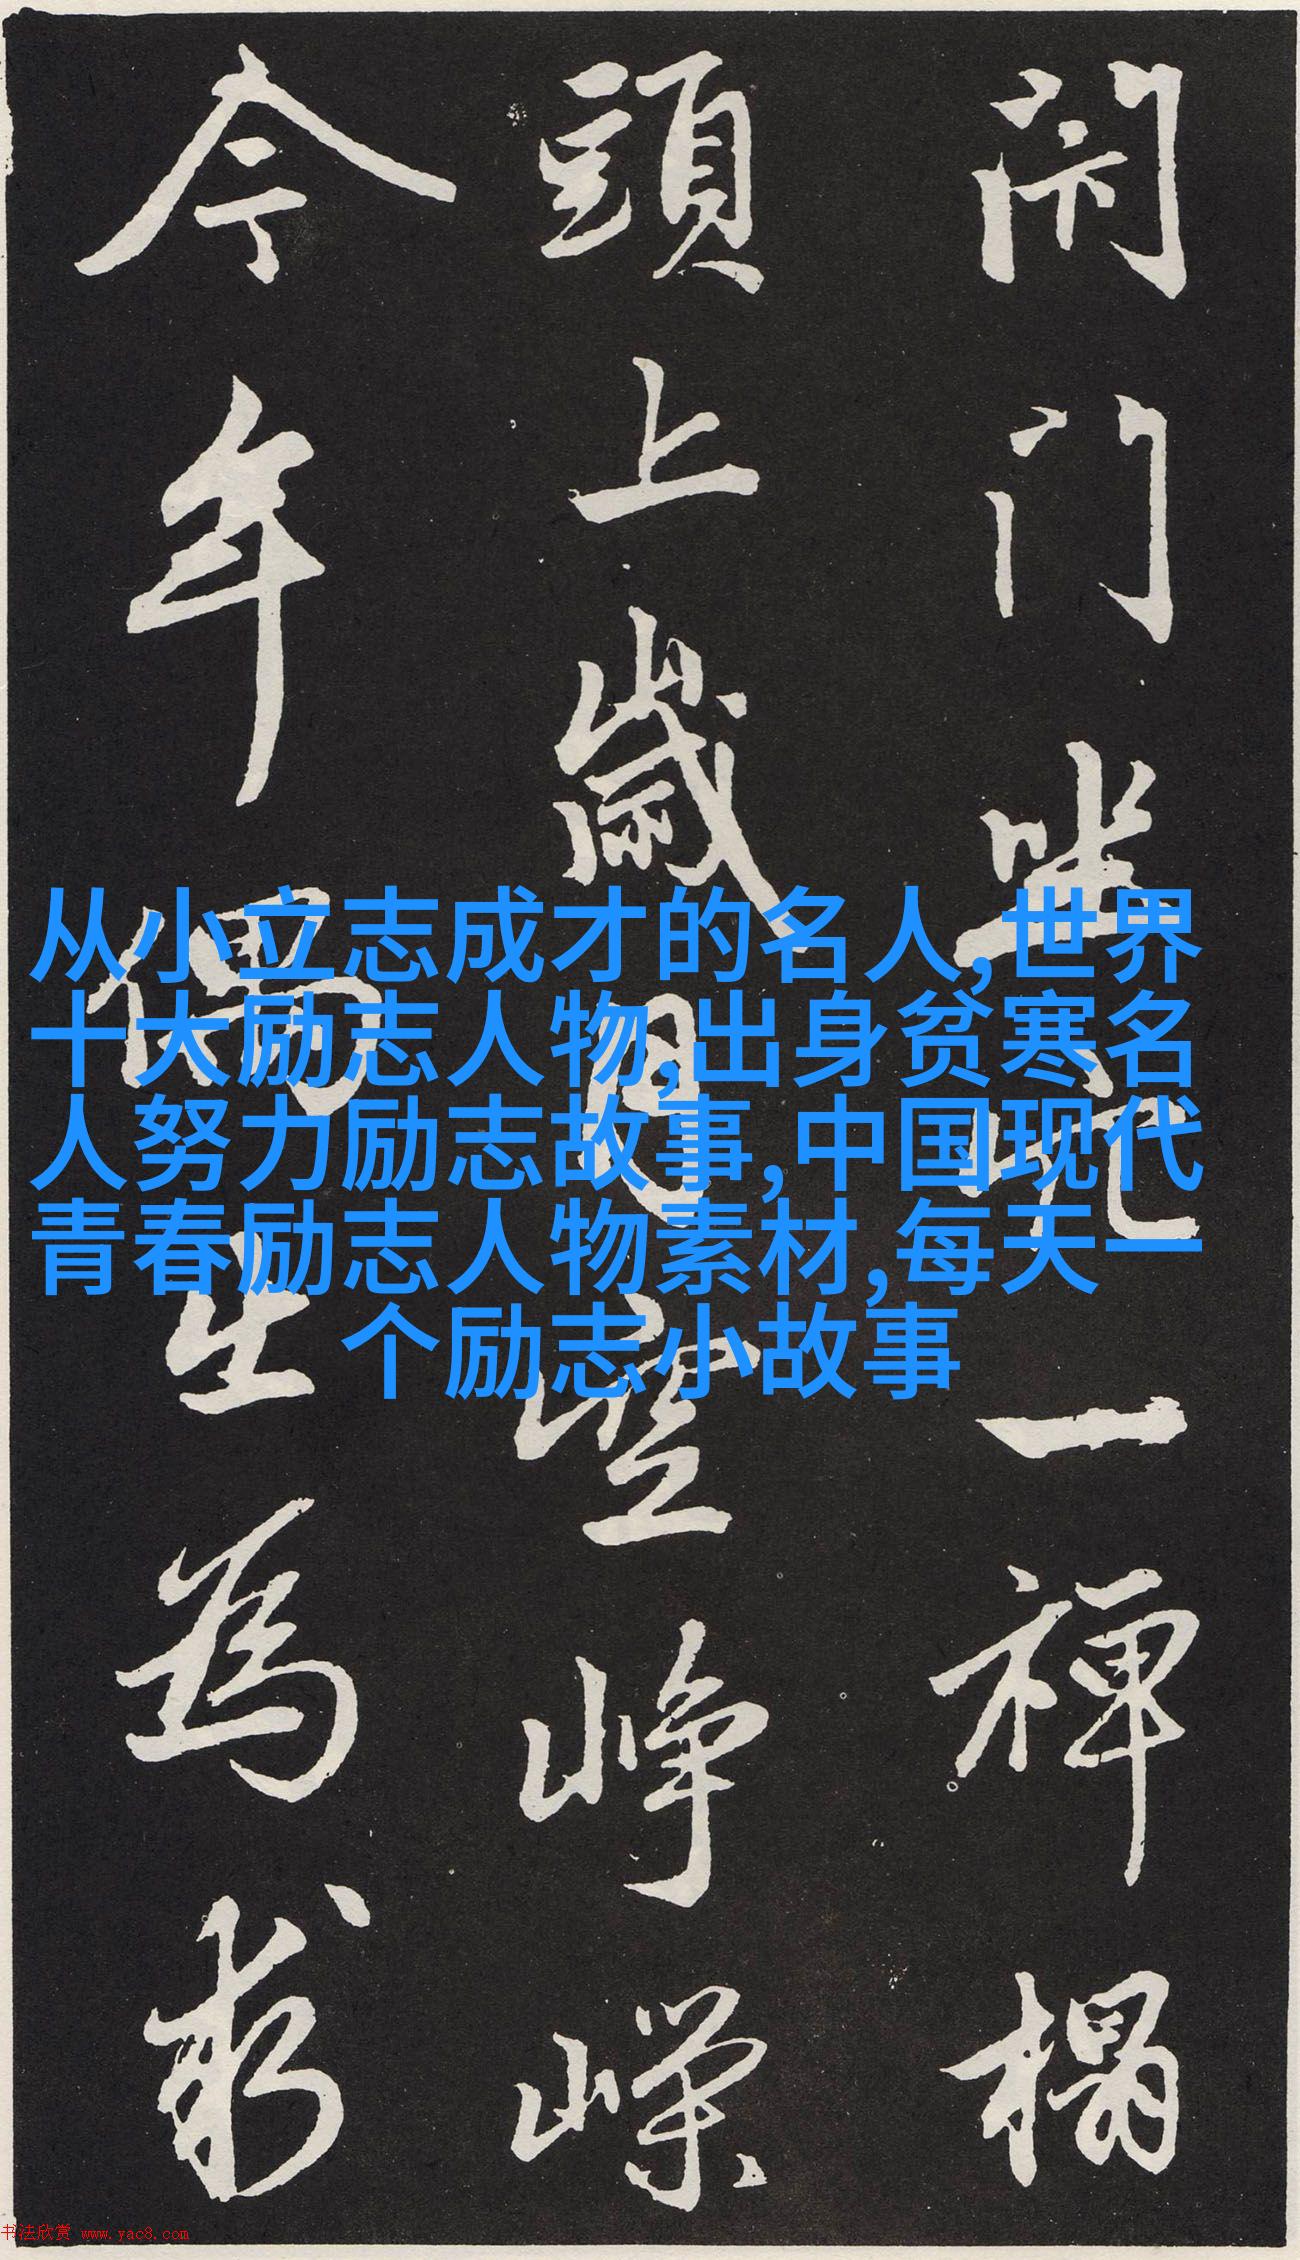 闭门坐穴一禅榻
頭上歲月空峥嵘
今年偶出為求
从小立志成才的名人,世界
十大励志人物,出身贫寒名
人努力励志故事,中国现代
青春励志人物素材,每天一
个励志小故事
书法欣赏 www.yac8.com